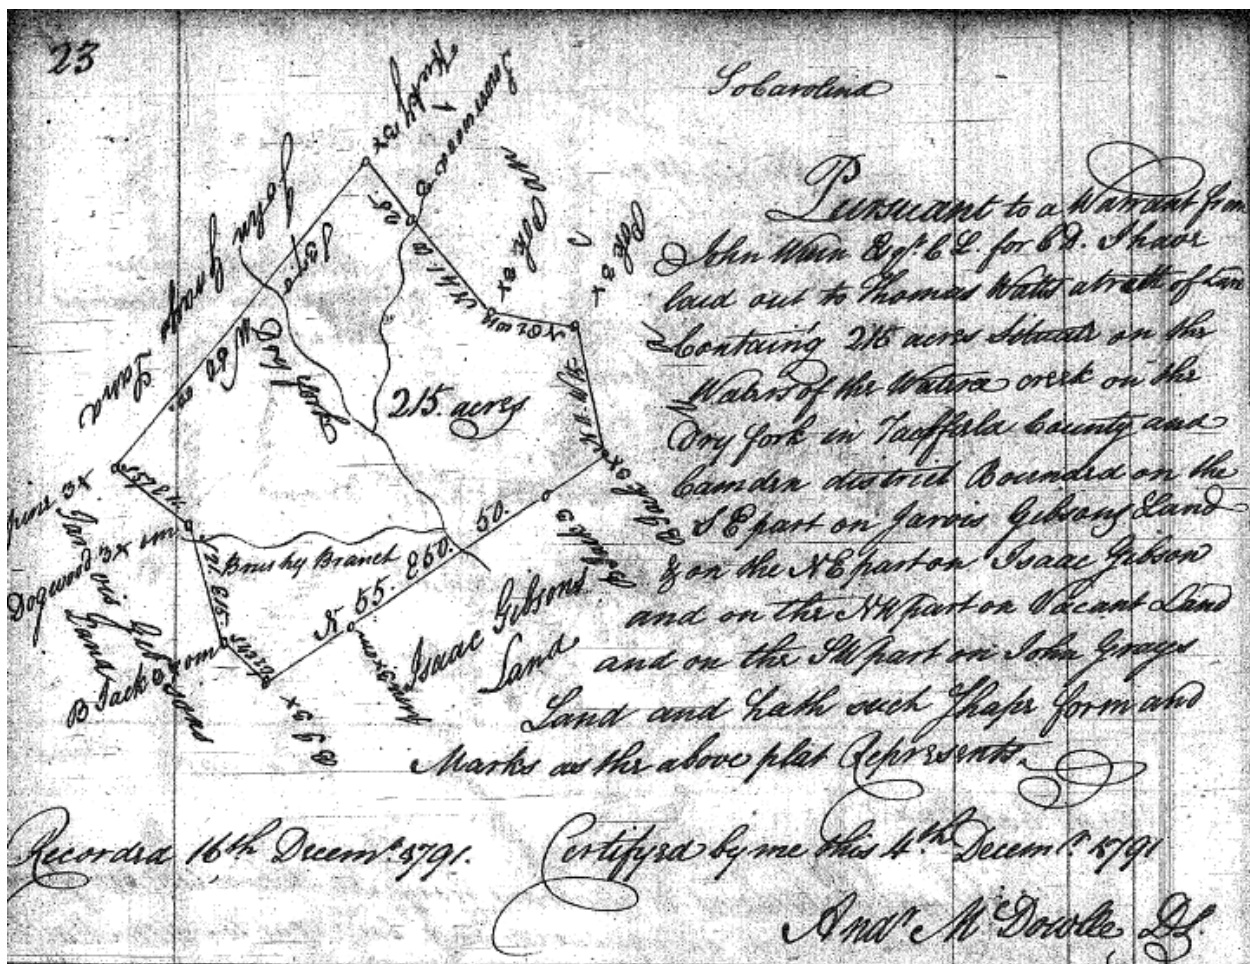 23
So Carolina
Pursuant to a Warrant from
John Winn Esqr. C L. for C D. I have
laid out to Thomas Watts a tratt of Lan
Containg 215 acres Situate on the
Waters of the Wateree creek on the
Dry fork in Faefield County and
Camden district Bounded on the
S E part on Jarvis Gibsons Land
& on the NE part on Isaac Gibson
and on the NW part on Vacant Land
and on the SW part on John Grays
Land and hath such Shape form and
Marks as the above plat Represents.
Recorded 16th Decemr. 1791.
Certifyed by me this 4th. Decemr 1791
Andw McDowlle DS.
John Grays Land
Dry fork
215. acres
Brushy Branch
N 55. E 60. 50.
Isaac Gibsons
Land
Jarvis Gibsons
Land
pine 3x
Dogwood 3x
B Jack 3x
B Jack 3x
B Jack